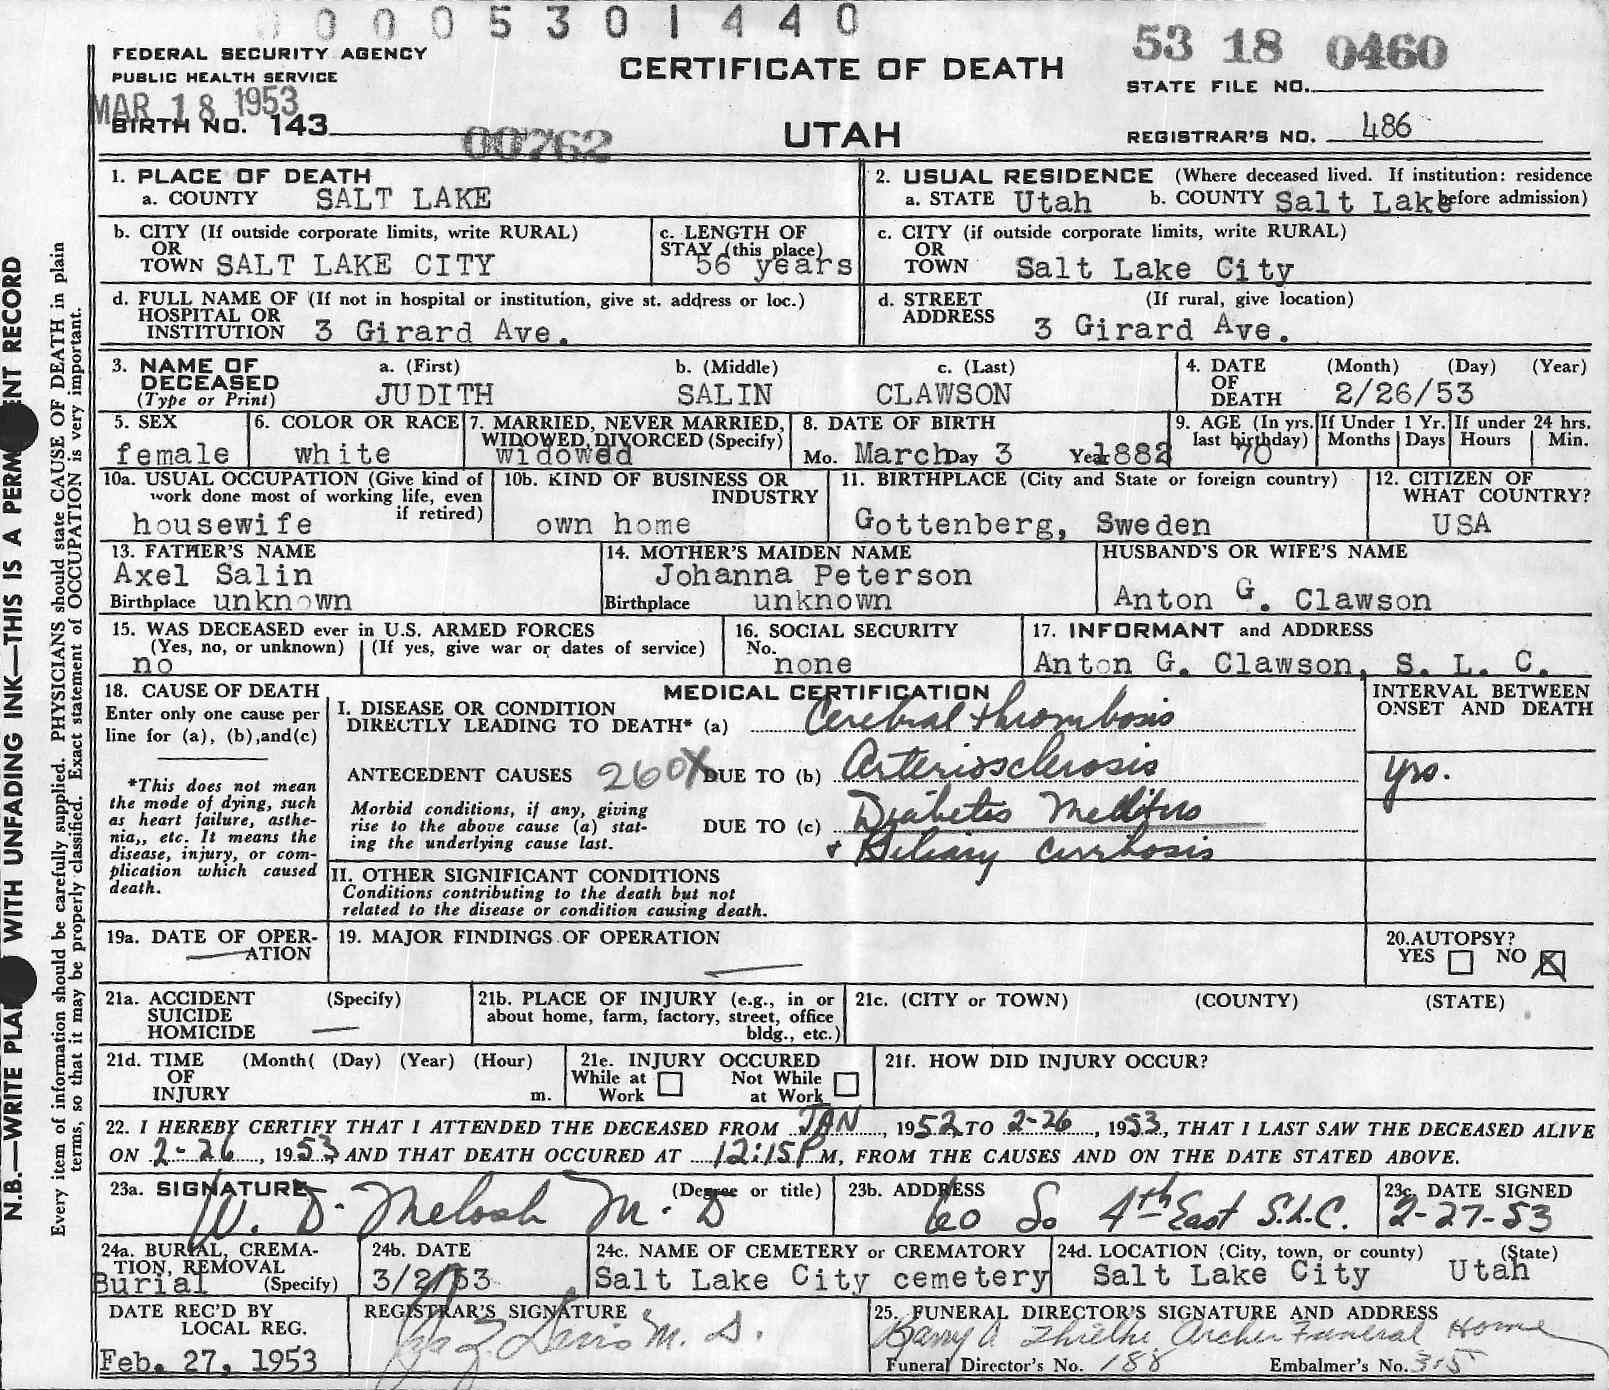 0 0 0 0 5 3 0 1 4 4 0
FEDERAL SECURITY AGENCY
PUBLIC HEALTH SERVICE
MAR 18 1953
BIRTH NO. 143
00762
CERTIFICATE OF DEATH
UTAH
53 18 0460
STATE FILE NO.
REGISTRAR'S NO. 486
1. PLACE OF DEATH
a. COUNTY SALT LAKE
2. USUAL RESIDENCE (Where deceased lived. If institution: residence before admission)
a. STATE Utah b. COUNTY Salt Lake
b. CITY (If outside corporate limits, write RURAL)
OR
TOWN SALT LAKE CITY
c. LENGTH OF
STAY (this place)
56 years
c. CITY (if outside corporate limits, write RURAL)
OR
TOWN Salt Lake City
d. FULL NAME OF (If not in hospital or institution, give st. address or loc.)
HOSPITAL OR
INSTITUTION 3 Girard Ave.
d. STREET (If rural, give location)
ADDRESS 3 Girard Ave.
3. NAME OF DECEASED
(Type or Print)
a. (First) b. (Middle) c. (Last)
JUDITH SALIN CLAWSON
4. DATE OF DEATH
(Month) (Day) (Year)
2/26/53
5. SEX
female
6. COLOR OR RACE
white
7. MARRIED, NEVER MARRIED,
WIDOWED, DIVORCED (Specify)
widowed
8. DATE OF BIRTH
Mo. March Day 3 Year 1882
9. AGE (In yrs. last birthday)
70
If Under 1 Yr. Months Days
If under 24 hrs. Hours Min.
10a. USUAL OCCUPATION (Give kind of
work done most of working life, even
if retired)
housewife
10b. KIND OF BUSINESS OR
INDUSTRY
own home
11. BIRTHPLACE (City and State or foreign country)
Gottenberg, Sweden
12. CITIZEN OF
WHAT COUNTRY?
USA
13. FATHER'S NAME
Axel Salin
Birthplace unknown
14. MOTHER'S MAIDEN NAME
Johanna Peterson
Birthplace unknown
HUSBAND'S OR WIFE'S NAME
Anton G. Clawson
15. WAS DECEASED ever in U.S. ARMED FORCES
(Yes, no, or unknown) (If yes, give war or dates of service)
no
16. SOCIAL SECURITY
No.
none
17. INFORMANT and ADDRESS
Anton G. Clawson, S. L. C.
18. CAUSE OF DEATH
Enter only one cause per
line for (a), (b),and(c)
*This does not mean
the mode of dying, such
as heart failure, asthe-
nia,, etc. It means the
disease, injury, or com-
plication which caused
death.
MEDICAL CERTIFICATION
I. DISEASE OR CONDITION
DIRECTLY LEADING TO DEATH* (a) Cerebral thrombosis
ANTECEDENT CAUSES 260X DUE TO (b) Arteriosclerosis
Morbid conditions, if any, giving
rise to the above cause (a) stat-
ing the underlying cause last.
DUE TO (c) Diabetes Mellitus
+ Biliary Cirrhosis
INTERVAL BETWEEN
ONSET AND DEATH
yrs.
II. OTHER SIGNIFICANT CONDITIONS
Conditions contributing to the death but not
related to the disease or condition causing death.
19a. DATE OF OPER-
ATION
19. MAJOR FINDINGS OF OPERATION
20. AUTOPSY?
YES NO X
21a. ACCIDENT (Specify)
SUICIDE
HOMICIDE
21b. PLACE OF INJURY (e.g., in or
about home, farm, factory, street, office
bldg., etc.)
21c. (CITY or TOWN) (COUNTY) (STATE)
21d. TIME (Month( (Day) (Year) (Hour)
OF
INJURY m.
21e. INJURY OCCURED
While at Work Not While at Work
21f. HOW DID INJURY OCCUR?
22. I HEREBY CERTIFY THAT I ATTENDED THE DECEASED FROM JAN, 1952 TO 2-26, 1953, THAT I LAST SAW THE DECEASED ALIVE
ON 2-26, 1953 AND THAT DEATH OCCURED AT 12:15P M, FROM THE CAUSES AND ON THE DATE STATED ABOVE.
23a. SIGNATURE (Degree or title)
W. D. Melosh M. D
23b. ADDRESS
60 So 4th East S.L.C.
23c. DATE SIGNED
2-27-53
24a. BURIAL, CREMA-
TION, REMOVAL
(Specify)
Burial
24b. DATE
3/2/53
24c. NAME OF CEMETERY or CREMATORY
Salt Lake City cemetery
24d. LOCATION (City, town, or county) (State)
Salt Lake City Utah
DATE REC'D BY
LOCAL REG.
Feb. 27, 1953
REGISTRAR'S SIGNATURE
Davis M. D.
25. FUNERAL DIRECTOR'S SIGNATURE AND ADDRESS
Archer Funeral Home
Funeral Director's No. 188 Embalmer's No. 315
Every item of information should be carefully supplied. PHYSICIANS should state CAUSE OF DEATH in plain
terms, so that it may be properly classified. Exact statement of OCCUPATION is very important.